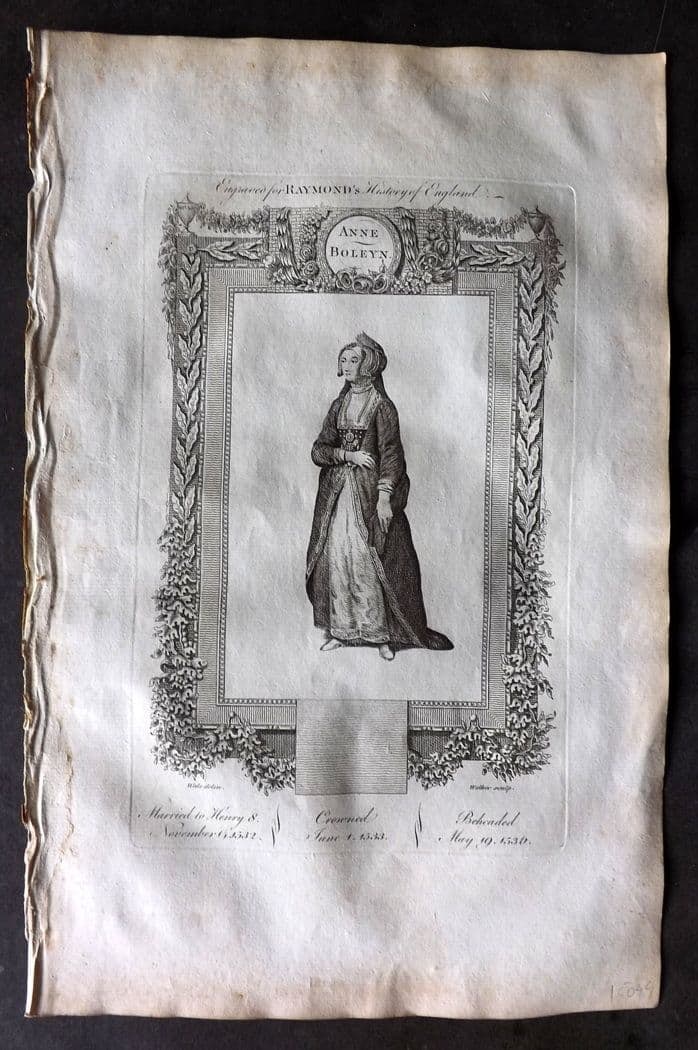 Engraved for RAYMOND'S History of England.
ANNE
BOLEYN.
Wale delin.
Walker sculp.
Married to Henry 8.
November 14, 1532.
Crowned
June 1. 1533.
Beheaded
May 19. 1536.